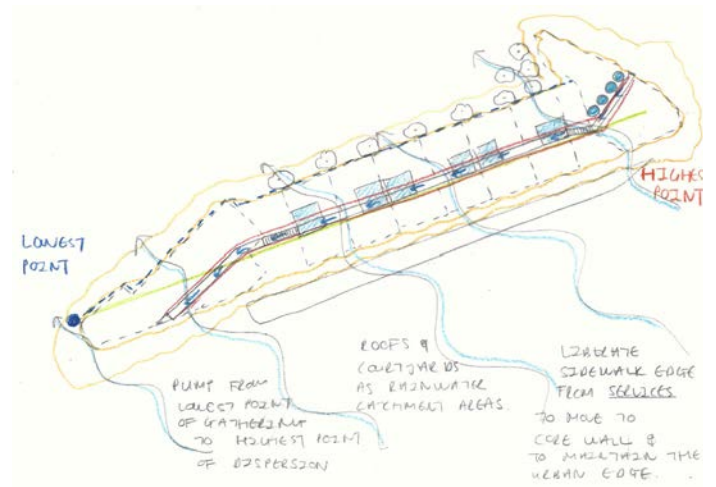 HIGHEST
POINT
LOWEST
POINT
PUMP FROM
LOWEST POINT
OF GATHERING
TO HIGHEST POINT
OF DISPERSION
ROOFS &
COURTYARDS
AS RAINWATER
CATCHMENT AREAS.
LIBERATE
SIDEWALK EDGE
FROM SERVICES
TO MOVE TO
CORE WALL &
TO MAINTAIN THE
URBAN EDGE.